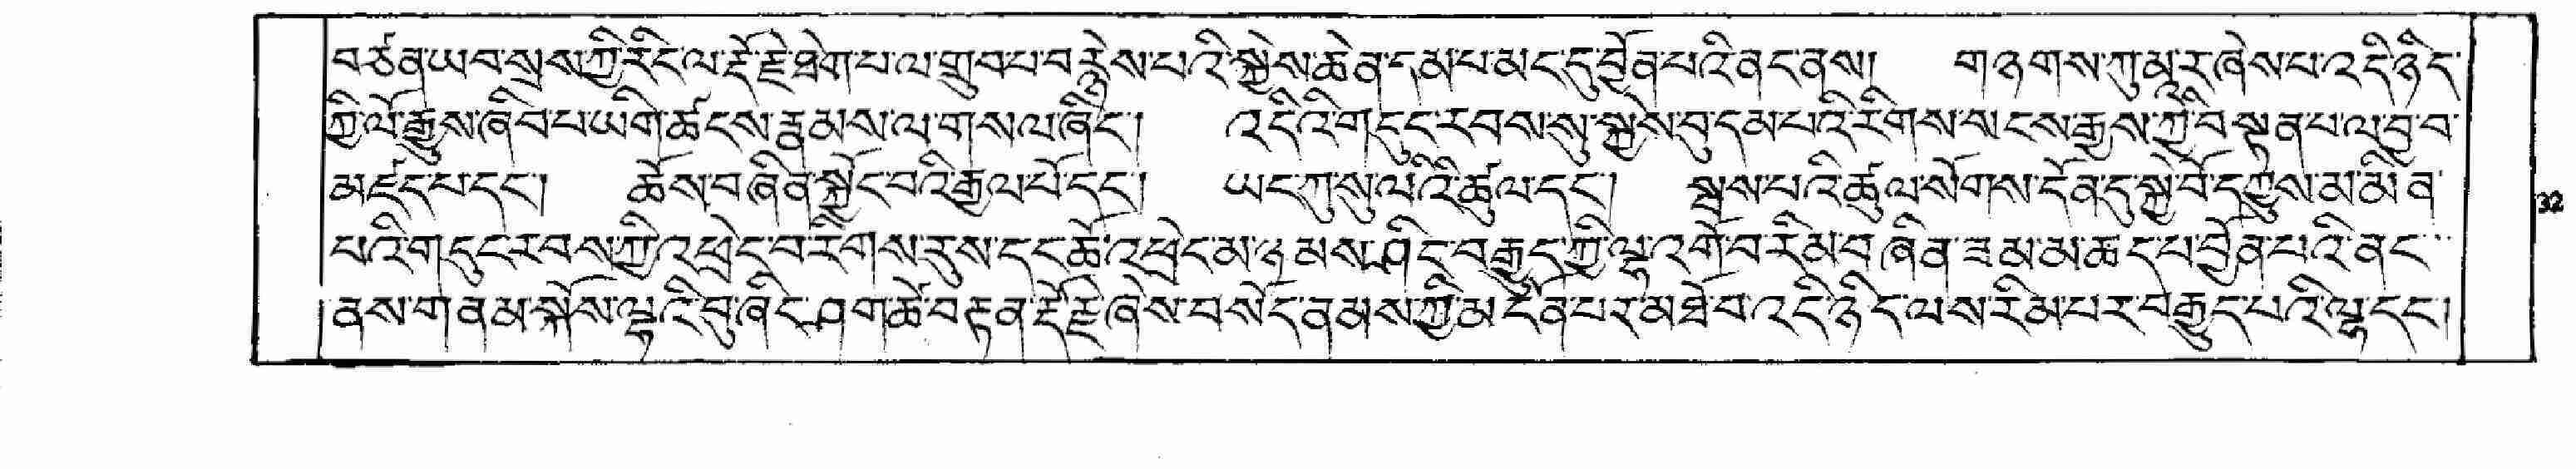 བཙན་ཡབ་སྲས་ཀྱི་རིང་ལ་རྡོ་རྗེ་ཐེག་པ་ལ་གྲུབ་པ་བརྙེས་པའི་སྐྱེས་ཆེན་དམ་པ་མང་དུ་བྱོན་པའི་ནང་ནས། གཉགས་ཀུ་མཱ་ར་ཞེས་པ་འདི་ཉིད་
ཀྱི་ལོ་རྒྱུས་ཞིབ་པ་ཡིག་ཚང་ས་རྣམས་ལ་གསལ་ཞིང་། འདིའི་གདུང་རབས་སུ་སྐྱེས་བུ་དམ་པའི་རིགས་སངས་རྒྱས་ཀྱི་བསྟན་པ་ལ་བྱ་བ་
མཛད་པ་དང་། ཆོས་བཞིན་སྐྱོང་བའི་རྒྱལ་པོ་དང་། ཡང་ཀུ་སུ་ལིའི་ཚུལ་དང་། སྦས་པའི་ཚུལ་སོགས་དོན་དུ་སྐྱེ་བོ་དཀྱུས་མ་མིན་
པའི་གདུང་རབས་ཀྱི་འཕྲེང་བ་རིགས་རུས་དང་ཆོ་འཕྲེང་མ་ཉམས་ཤིང་བརྒྱུད་ཀྱི་ལྷ་འགོ་བ་རིམ་བཞིན་ཟམ་མ་ཆད་པ་བྱོན་པའི་ནང་
ནས་གནམ་སྐོས་ལྷའི་བུ་ཞིང་ཤག་ཚེ་བརྟན་རྡོ་རྗེ་ཞེས་བསོད་ནམས་ཀྱི་མངོན་པར་མཐོ་བ་འདི་ཉིད་ལས་རིམ་པར་བརྒྱུད་པའི་ལྷ་དང་།
32